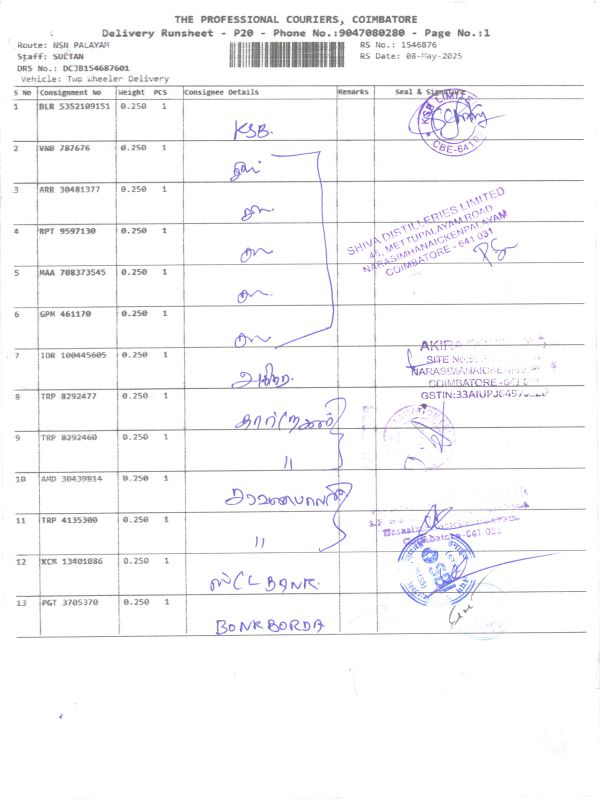 THE PROFESSIONAL COURIERS, COIMBATORE
Delivery Runsheet - P20 - Phone No.:9047080280 - Page No.:1
Route: NSN PALAYAM RS No.: 1546876
Staff: SULTAN RS Date: 08-May-2025
DRS No.: DCJB154687601
Vehicle: Two Wheeler Delivery
S No Consignment No Weight PCS Consignee Details Remarks Seal & Signature
1 BLR 5352109151 0.250 1 KSB. KSB LIMITED CBE-641
2 VNB 787676 0.250 1
3 ARR 30481377 0.250 1
4 RPT 9597130 0.250 1
SHIVA DISTILLERIES LIMITED
45, METTUPALAYAM ROAD
NARASIMHANAICKENPALAYAM
COIMBATORE - 641 031
5 MAA 708373545 0.250 1
6 GPM 461170 0.250 1
7 IDR 100445605 0.250 1 அகிரா
AKIRA
SITE No.
NARASIMANAICKEN
COIMBATORE
GSTIN:33AIUPJ
8 TRP 8292477 0.250 1
9 TRP 8292460 0.250 1 "
10 AMD 30439814 0.250 1
11 TRP 4135300 0.250 1 "
Coimbatore-641 031
12 KCM 13401086 0.250 1 BANK.
13 PGT 3705370 0.250 1 BONKBORDA